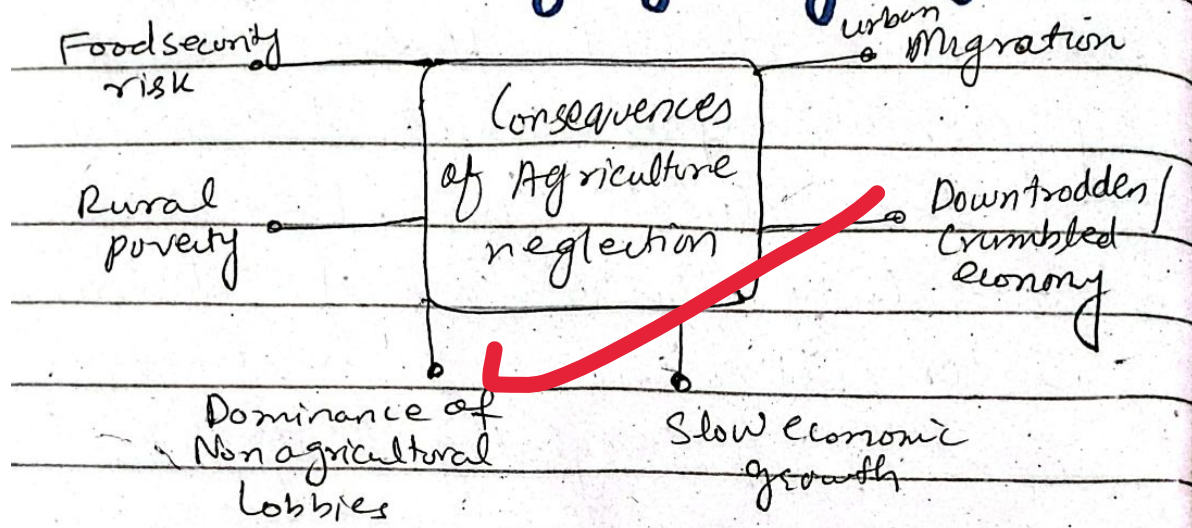 Food security
risk
urban
Migration
Consequences
of Agriculture
neglection
Rural
poverty
Downtrodden/
crumbled
economy
Dominance of
Non agricultural
Lobbies
Slow economic
growth